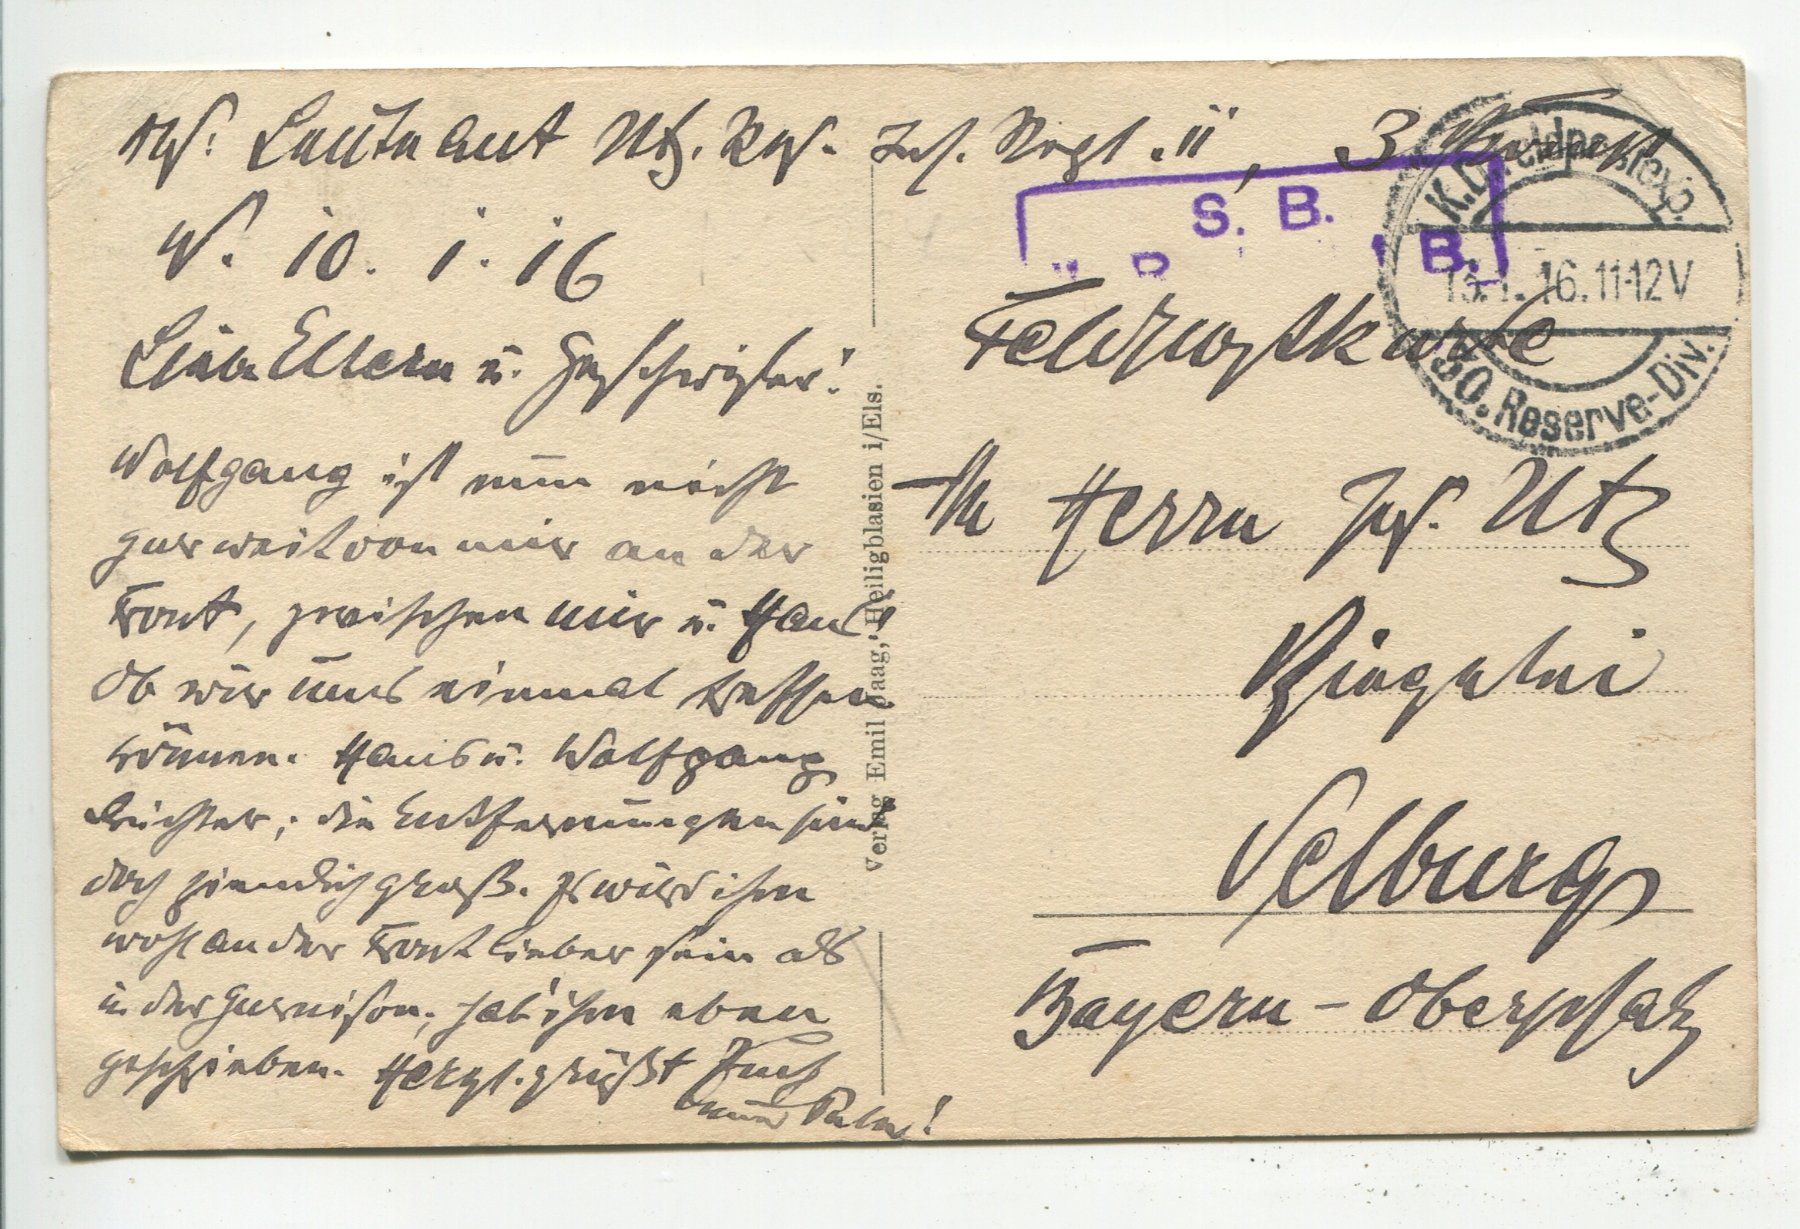 Abs: Leutnant Utz, Res. Inf. Regt. 11, 3.
W. 10. 1. 16
Liebe Eltern u. Geschwister!
Wolfgang ist nun nicht
gar weit von mir an der
Front, zwischen mir u. Hans!
Ob wir uns einmal treffen
können. Hans u. Wolfgang
leichter; die Entfernungen sind
doch ziemlich groß. Es wird ihm
wohl an der Front lieber sein als
in der Garnison; hab' ihm eben
geschrieben. Herzl. grüßt Euch
Euer
Verlag Emil Jaag, Heiligblasien i/Els.
S. B.
B.
K.D. Feldpostexp.
13.1.16. 11-12V
30. Reserve-Div.
Feldpostkarte
An Herrn Jos. Utz
Ziegelei
Velburg
Bayern - Oberpfalz